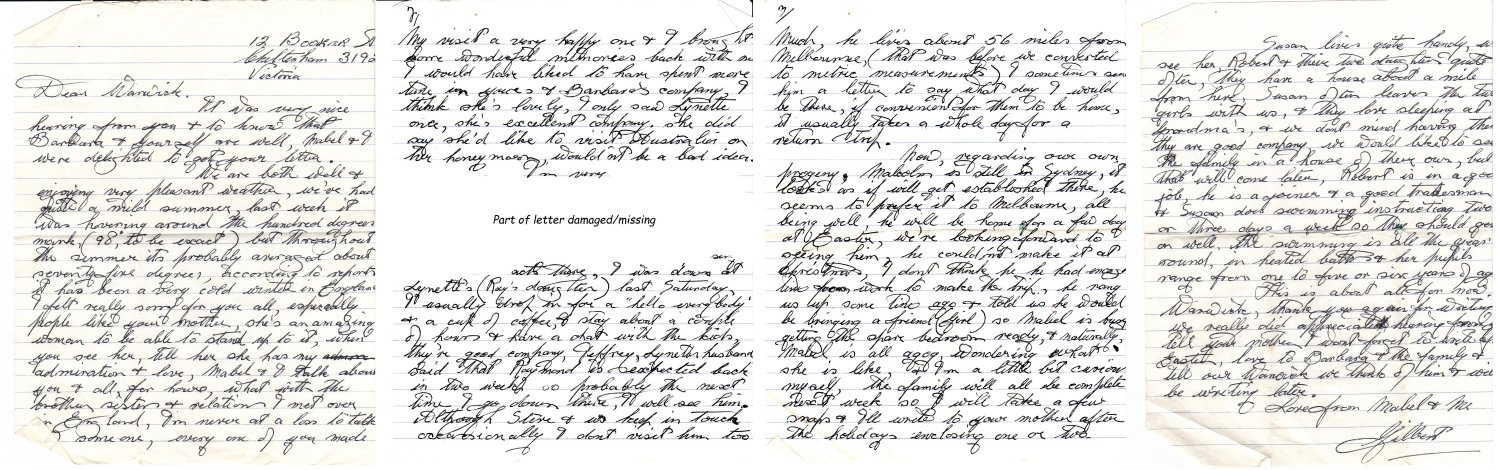 12 Booker St
Cheltenham 3192
Victoria
Dear Warwick.
It was very nice
hearing from you & to know that
Barbara & yourself are well, Mabel & I
were delighted to get your letter.
We are both well &
enjoying very pleasant weather, we've had
quite a mild summer, last week it
was hovering around the hundred degrees
mark, (98, to be exact) but throughout
this summer its probably averaged about
seventy five degrees, according to reports
it has been a very cold winter in England
I felt really sorry for you all, especially
people like your mother, she's an amazing
woman to be able to stand up to it, when
you see her, tell her she has my
admiration & love, Mabel & I talk about
you & all, for hours, what with the
brothers, sisters & relations I met over
in England, I'm never at a loss to talk
someone, every one of you made
2/
My visit a very happy one & I brought
some wonderful memories back with me
I would have liked to have spent more
time in yours & Barbara's company, I
think she's lovely, I only saw Lynette
once, she's excellent company. She did
say she'd like to visit Australia on
her honeymoon, wouldn't be a bad idea.
I'm very
Part of letter damaged/missing
out there, I was down at
Lynette's (Ray's daughter) last Saturday,
I usually drop in for a "hello everybody"
& a cup of coffee, & stay about a couple
of hours & have a chat with the kids,
they're good company, Jeffrey, Lynette's husband
said that Raymond is expected back
in two weeks so probably the next
time I go down there, I'll see him.
Although Steve & us keep in touch
occasionally I dont visit him too
3/
Much, he lives about 56 miles from
Melbourne, (that was before we converted
to metric measurements) I sometimes send
him a letter to say what day I would
be there, if convenient for them to be home,
it usually takes a whole day for a
return trip.
Now, regarding our own
progeny, Malcolm is still in Sydney, it
looks as if will get established there, he
seems to prefer it to Melbourne, all
being well, he will be home for a few days
at Easter, we're looking forward to
seeing him, he couldn't make it at
Christmas, I dont think he had enough
time from work to make the trip, he rang
us up some time ago & told us he would
be bringing a friend (girl) so Mabel is busy
getting the spare bedroom ready, & naturally,
Mabel is all agog, wondering what
she is like, & I'm a little bit curious
myself, the family will all be complete
next week so I will take a few
snaps & I'll write to your mother after
the holidays enclosing one or two
Susan lives quite handy, we
see her, Robert & their two daughters quite
often, They have a house about a mile
from here, Susan often leaves the two
girls with us, & they love sleeping at
Grandma's, & we dont mind having them
they are good company we would like to see
the family in a house of their own, but
that will come later, Robert is in a good
job, he is a joiner & a good tradesman
& Susan does swimming instructing two
or three days a week so they should get
on well. The swimming is all the year
round, in heated baths & her pupils
range from one to five or six years of age
This is about all for now
Warwick, thank you again for writing,
we really did appreciate hearing from you
tell your mother I wont forget to write after
Easter love to Barbara & the family &
tell our Warwick we think of him & will
be writing later.
Love from Mabel & Me
Gilbert